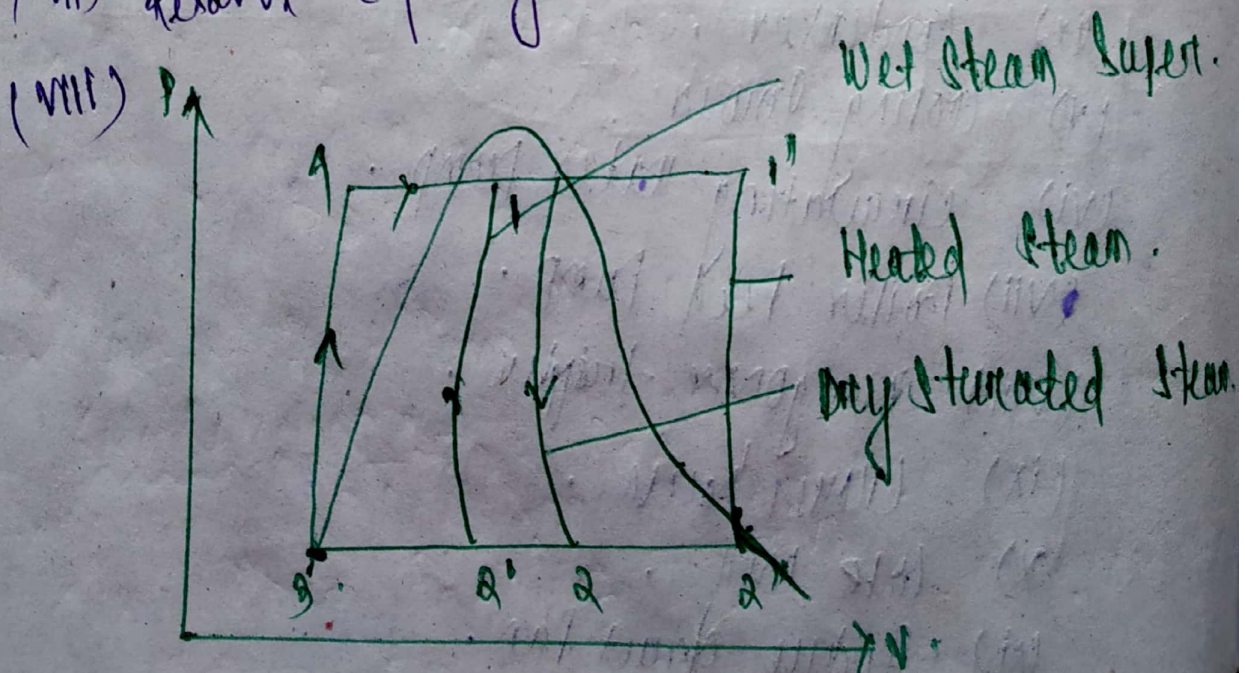 (VIII) P
Wet Steam Super.
4 1 1"
Heated Steam.
Dry Stureated Steam.
3 2' 2 2"
V